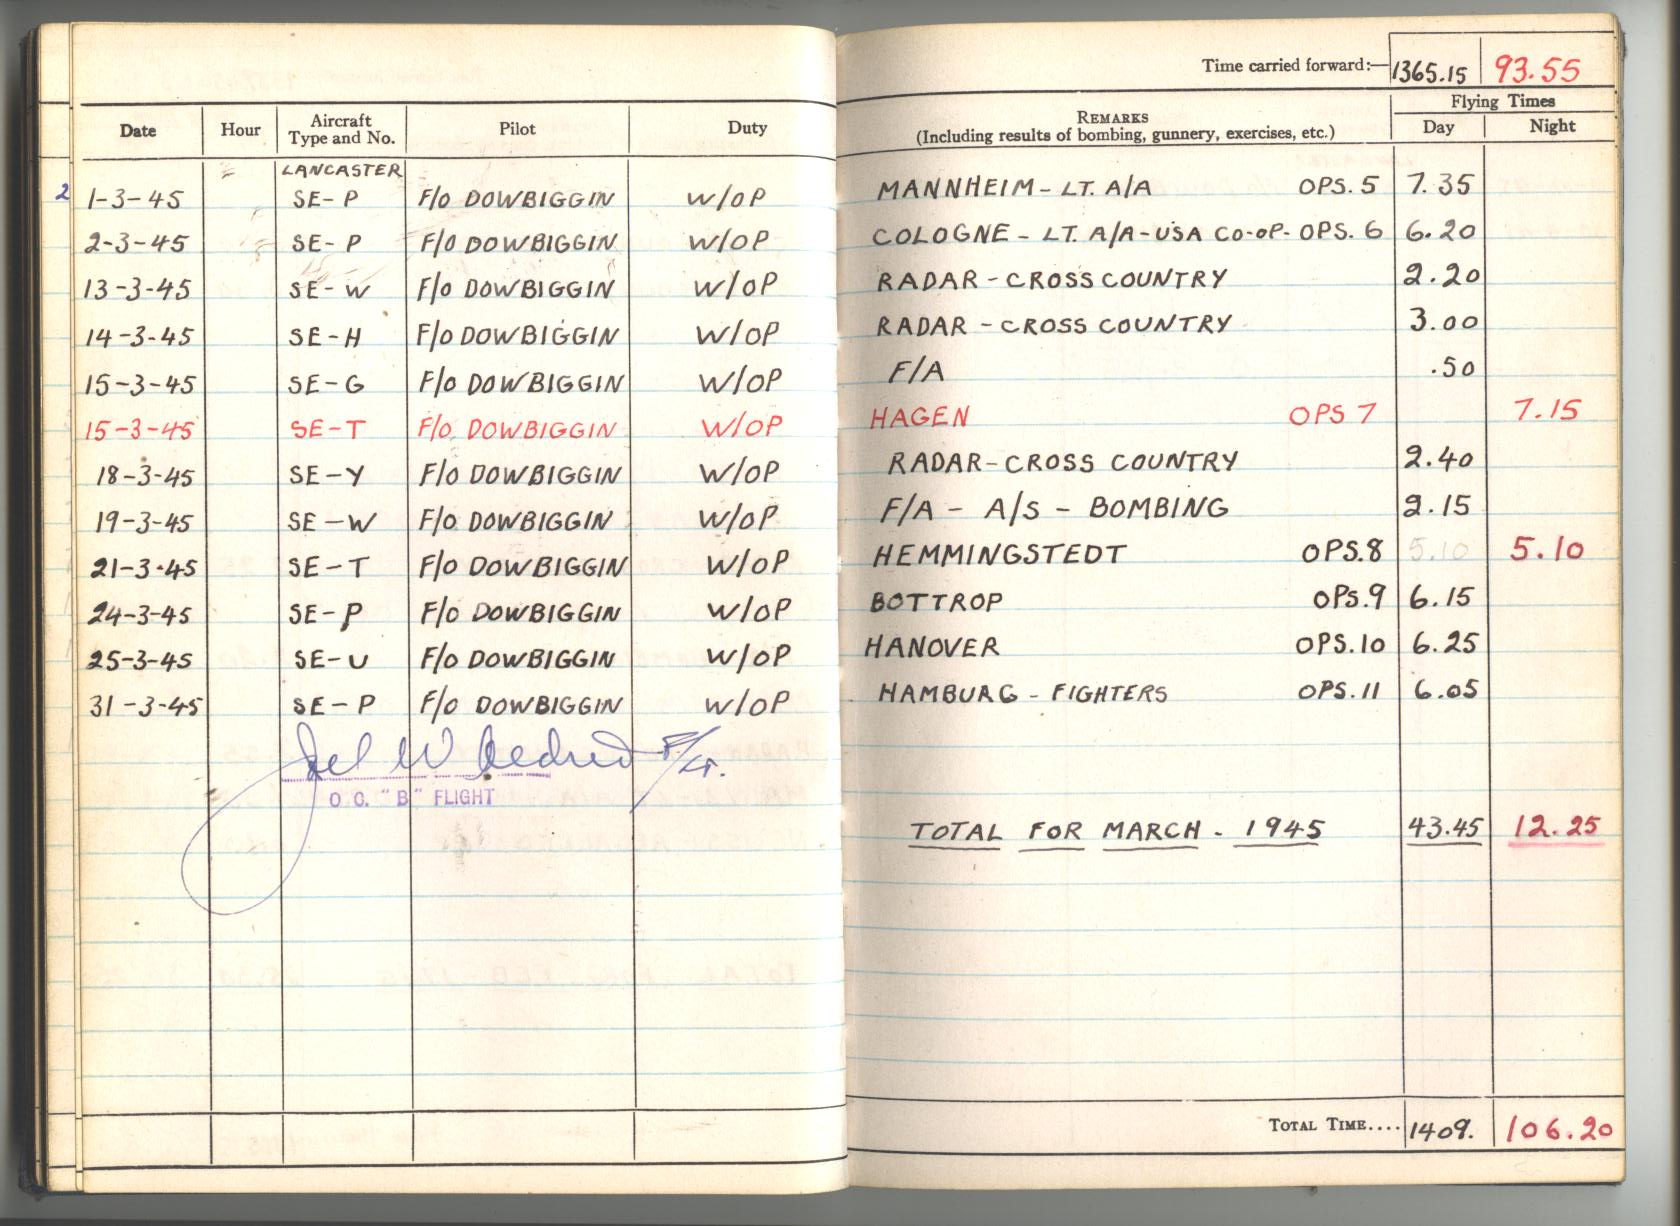 Time carried forward:— 1365.15 93.55
Date Hour Aircraft Type and No. Pilot Duty REMARKS (Including results of bombing, gunnery, exercises, etc.) Flying Times Day Night
LANCASTER
2 1-3-45 SE-P F/O DOWBIGGIN W/OP MANNHEIM - LT. A/A OPS. 5 7.35
2-3-45 SE-P F/O DOWBIGGIN W/OP COLOGNE - LT. A/A - USA CO-OP- OPS. 6 6.20
13-3-45 SE-W F/O DOWBIGGIN W/OP RADAR - CROSS COUNTRY 2.20
14-3-45 SE-H F/O DOWBIGGIN W/OP RADAR - CROSS COUNTRY 3.00
15-3-45 SE-G F/O DOWBIGGIN W/OP F/A .50
15-3-45 SE-T F/O DOWBIGGIN W/OP HAGEN OPS 7 7.15
18-3-45 SE-Y F/O DOWBIGGIN W/OP RADAR-CROSS COUNTRY 2.40
19-3-45 SE-W F/O DOWBIGGIN W/OP F/A - A/S - BOMBING 2.15
21-3-45 SE-T F/O DOWBIGGIN W/OP HEMMINGSTEDT OPS.8 5.10 5.10
24-3-45 SE-P F/O DOWBIGGIN W/OP BOTTROP OPS.9 6.15
25-3-45 SE-U F/O DOWBIGGIN W/OP HANOVER OPS.10 6.25
31-3-45 SE-P F/O DOWBIGGIN W/OP HAMBURG - FIGHTERS OPS.11 6.05
F/LT.
O.C. "B" FLIGHT
TOTAL FOR MARCH - 1945 43.45 12.25
TOTAL TIME.... 1409. 106.20